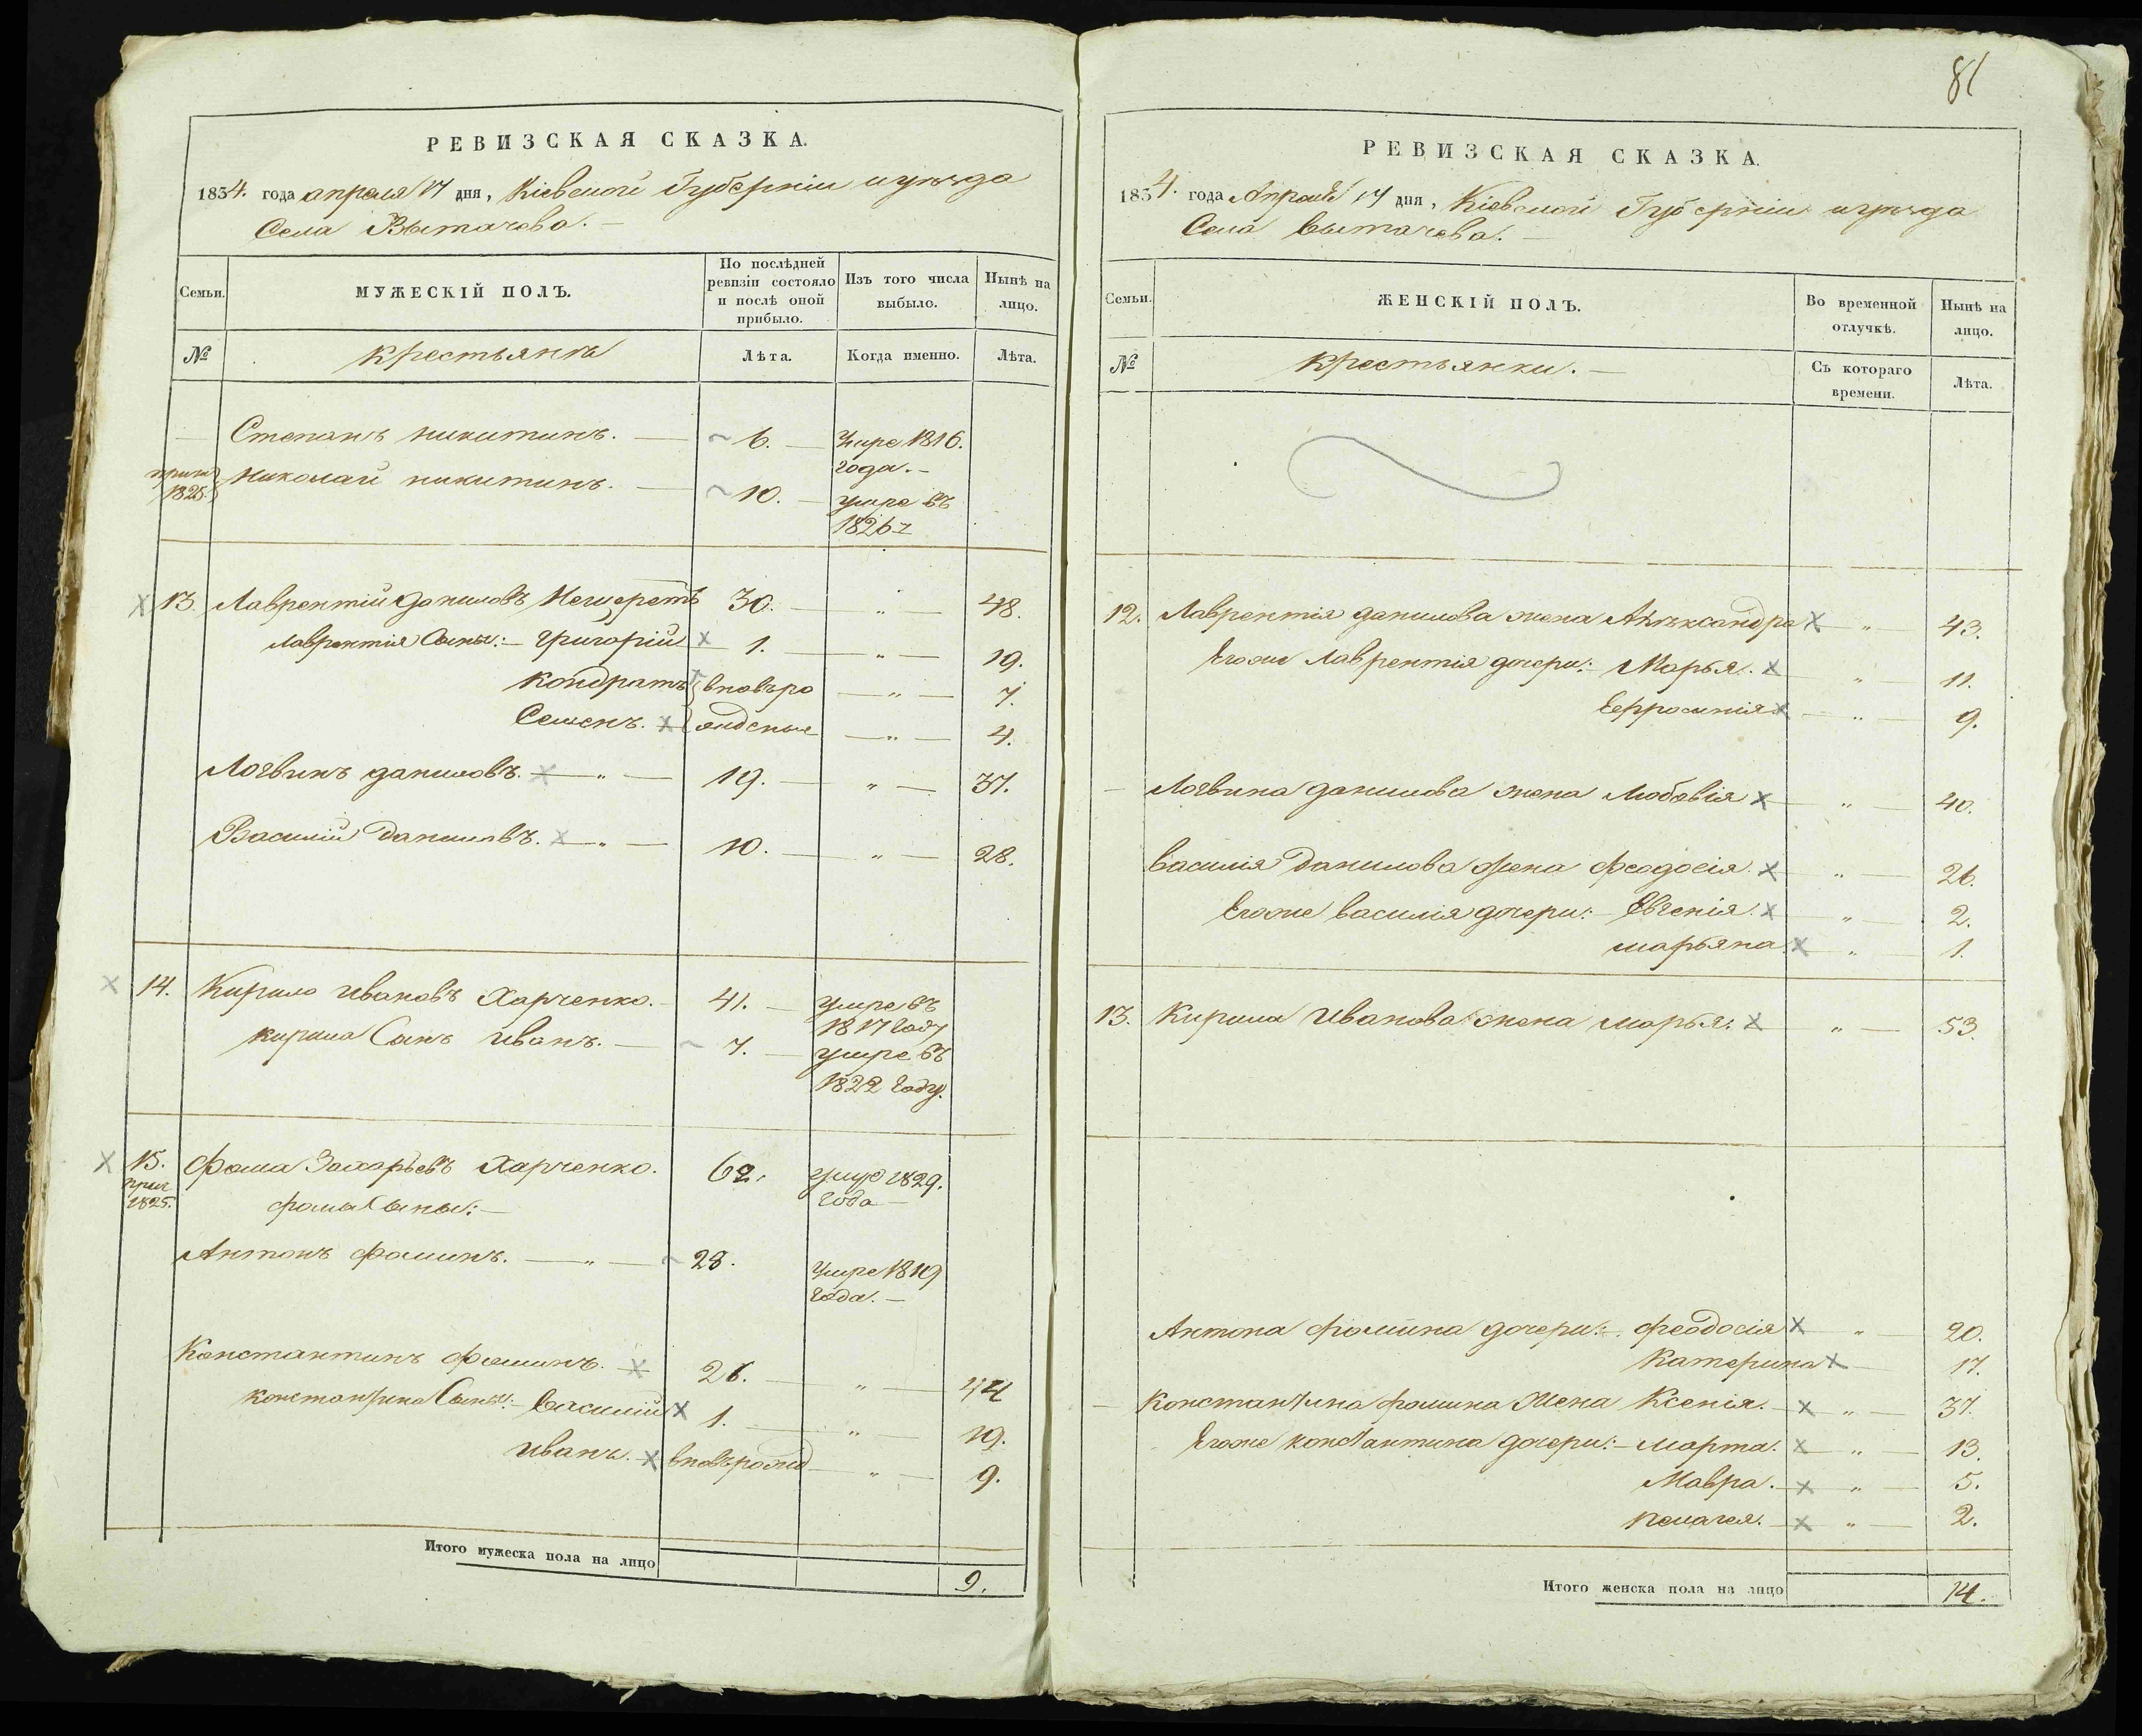 РЕВИЗСКАЯ СКАЗКА.
1834. года апреля 17 дня, Кіевской Губерніи и уѣзда
Села Вытачева.
Семьи.
МУЖЕСКІЙ ПОЛЪ.
По послѣдней ревизіи состояло и послѣ оной прибыло.
Изъ того числа выбыло.
Нынѣ на лицо.
№
крестьянъ
Лѣта.
Когда именно.
Лѣта.
Степанъ никитинъ. — 6. — Умре 1816.
года. —
1825. Николай никитинъ. — 10. — умре въ
1826 г
13. Лаврентій даниловъ 30. — „ — 48.
лаврентія Сыны: — григорій 1. — „ — 19.
кондратъ вновьро — „ — 7.
Семенъ. жденные — „ — 4.
Логвинъ даниловъ. — „ — 19. — „ — 37.
Василій даниловъ. — „ — 10. — „ — 28.
14. Кирило ивановъ Харченко. — 41. — умре въ
1817 году
кирила Сынъ иванъ. — 7. — умре въ
1822 году.
15. Фома Захарьевъ Харченко. 62. умре 1829.
1825. фомы Сыны: — года —
Антонъ фоминъ. — „ — 28. Умре 1819
года. —
Константинъ фоминъ. — 26. — „ — 44
константина Сыны: — василій 1. — „ — 19.
иванъ. вновьрожд — „ — 9.
Итого мужеска пола на лицо 9.
81
РЕВИЗСКАЯ СКАЗКА.
1834. года Апреля 17 дня, Кіевской Губерніи и уѣзда
Села Вытачева. —
Семьи.
ЖЕНСКІЙ ПОЛЪ.
Во временной отлучкѣ.
Нынѣ на лицо.
№
крестьянки. —
Съ котораго времени.
Лѣта.
12. Лаврентія данилова жена Алѣксандра — „ — 43.
Егоже Лаврентія дочери: — Марья. „ 11.
Ефросинія — „ — 9.
— Логвина данилова жена Любовія — „ — 40.
василія данилова жена феодосія. — „ — 26.
Егоже василія дочери: — Евгенія. „ 2.
марьяна. „ 1.
13. Кирила Иванова жена марья: — „ — 53.
Антона фомина дочери: — феодосія — „ — 20.
катерина — 17.
— Константина фомина жена Ксенія. — „ — 37.
Егоже константина дочери: — марта. — „ — 13.
Мавра. — „ — 5.
пелагея. — „ — 2.
Итого женска пола на лицо 14.